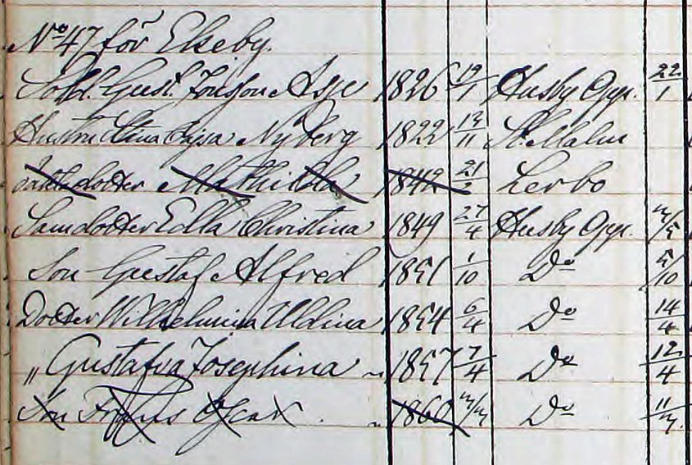 No 47 för Elseby.
Sold. Gust. Jonsson Asp 1826 19/1 Husby Opp. 22/1
Hustru Stina Cajsa Nyberg 1822 13/11 St. Malm
dotter Mathilda 1842 21/2 Lerbo
Sam dotter Edla Christina 1849 27/4 Husby Opp.
Son Gustaf Alfred 1851 1/10 Do 5/10
Dotter Wilhelmina Aldina 1854 6/4 Do 14/4
„ Gustafva Josephina 1857 7/4 Do 12/4
Son Oscar 1860 Do